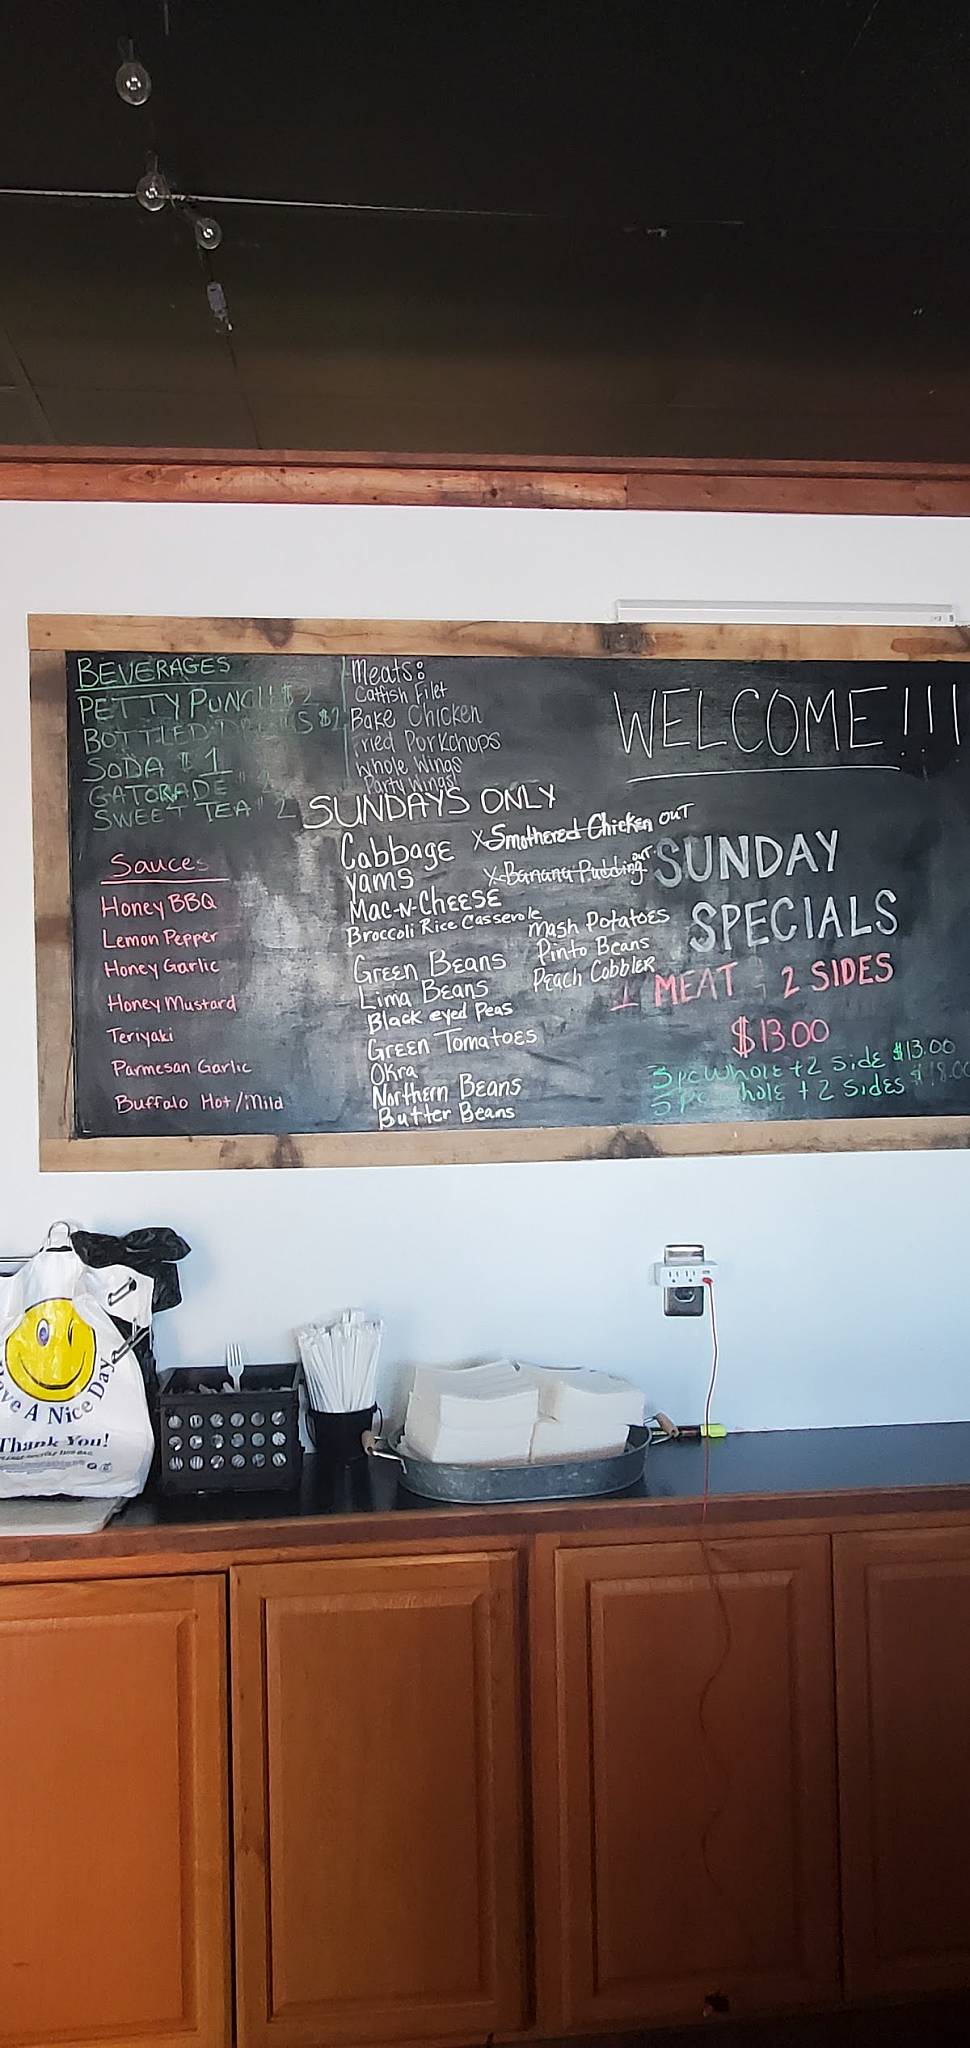 BEVERAGES
PETTY PUNCH $2
BOTTLED $2
SODA $1
GATORADE
SWEET TEA $2
Sauces
Honey BBQ
Lemon Pepper
Honey Garlic
Honey Mustard
Teriyaki
Parmesan Garlic
Buffalo Hot/Mild
Meats:
Catfish Filet
Bake Chicken
Fried Porkchops
Whole Wings
Party Wings
SUNDAYS ONLY
Cabbage
Yams
Mac-N-Cheese
Broccoli Rice Casserole
Green Beans
Lima Beans
Black eyed Peas
Green Tomatoes
Okra
Northern Beans
Butter Beans
X Smothered Chicken OUT
X Banana Pudding OUT
Mash Potatoes
Pinto Beans
Peach Cobbler
WELCOME!!!
SUNDAY
SPECIALS
1 MEAT 2 SIDES
$13.00
3pc whole + 2 side $13.00
5pc whole + 2 Sides $18.00
Have A Nice Day
Thank You!